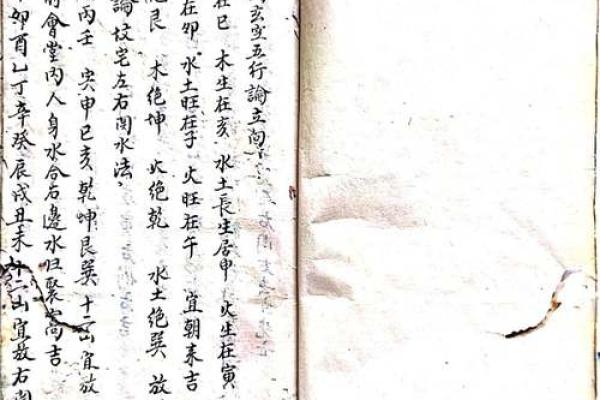 玄空五行論立向
在巳　木生在亥　水土長生居申　火生在寅
在卯　水土旺在子　火旺在午　宜朝来吉
絶艮　木絶坤　火絶乾　水土絶巽　放
論坟宅左右関水法
丙壬　寅申巳亥乾坤艮巽十二山宜放
會堂內人身水合右邊水归聚窩吉
卯酉乙丁辛癸辰戌丑未十二山宜放右関